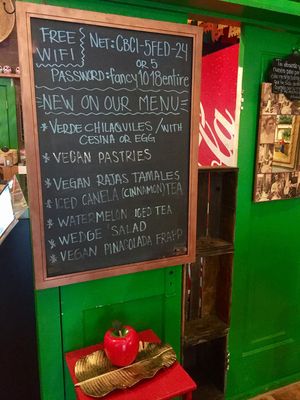 FREE WIFI NET: CBCI-5FED-24
OR 5
PASSWORD: fancy1018entire
NEW ON OUR MENU
* VERDE CHILAQUILES /WITH
CESINA OR EGG
* VEGAN PASTRIES
VEGAN RAJAS TAMALES
* ICED CANELA (CINNAMON) TEA
WATERMELON ICED TEA
* WEDGE SALAD
* VEGAN PINACOLADA FRAPP